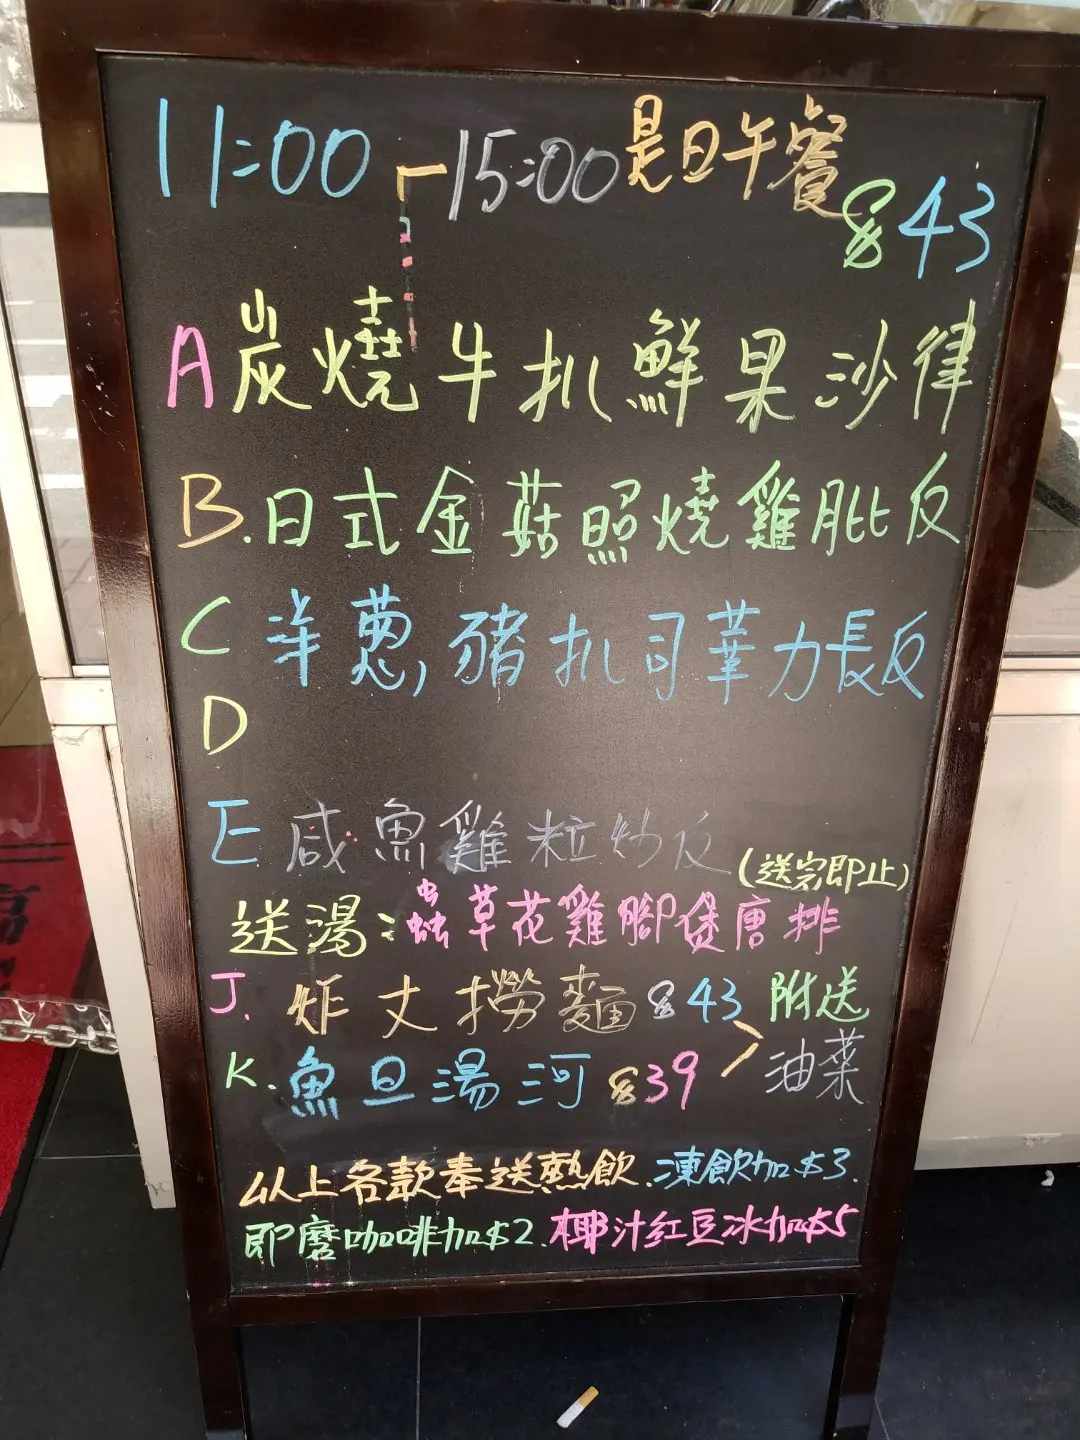 11:00-15:00是日午餐
$43
A炭燒牛扒鮮果沙律
B.日式金菇照燒雞肶反
C洋葱,豬扒司華力長反
D
E咸魚雞粒炒反
(送完即止)
送湯:蟲草花雞腳煲唐排
J.炸丈撈麵$43 附送
K.魚旦湯河$39 油菜
以上各款奉送熱飲.凍飲加$3.
即磨咖啡加$2.椰汁紅豆冰加$5